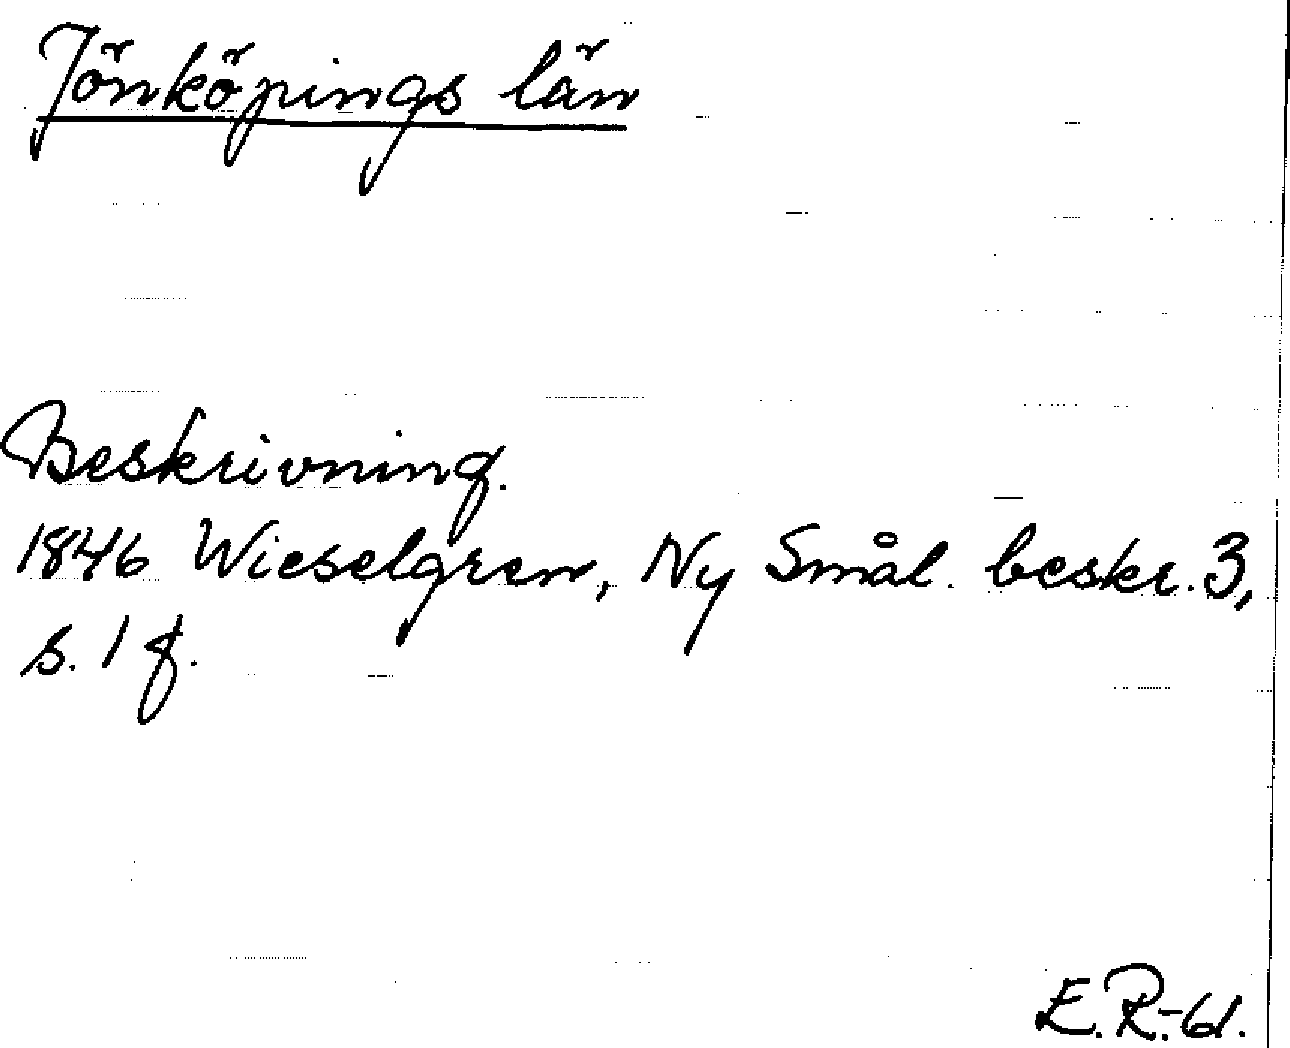 Jönköpings län
Beskrivning.
1846 Wieselgren, Ny Smål. beskr. 3,
s. 1 f.
E.R.-61.